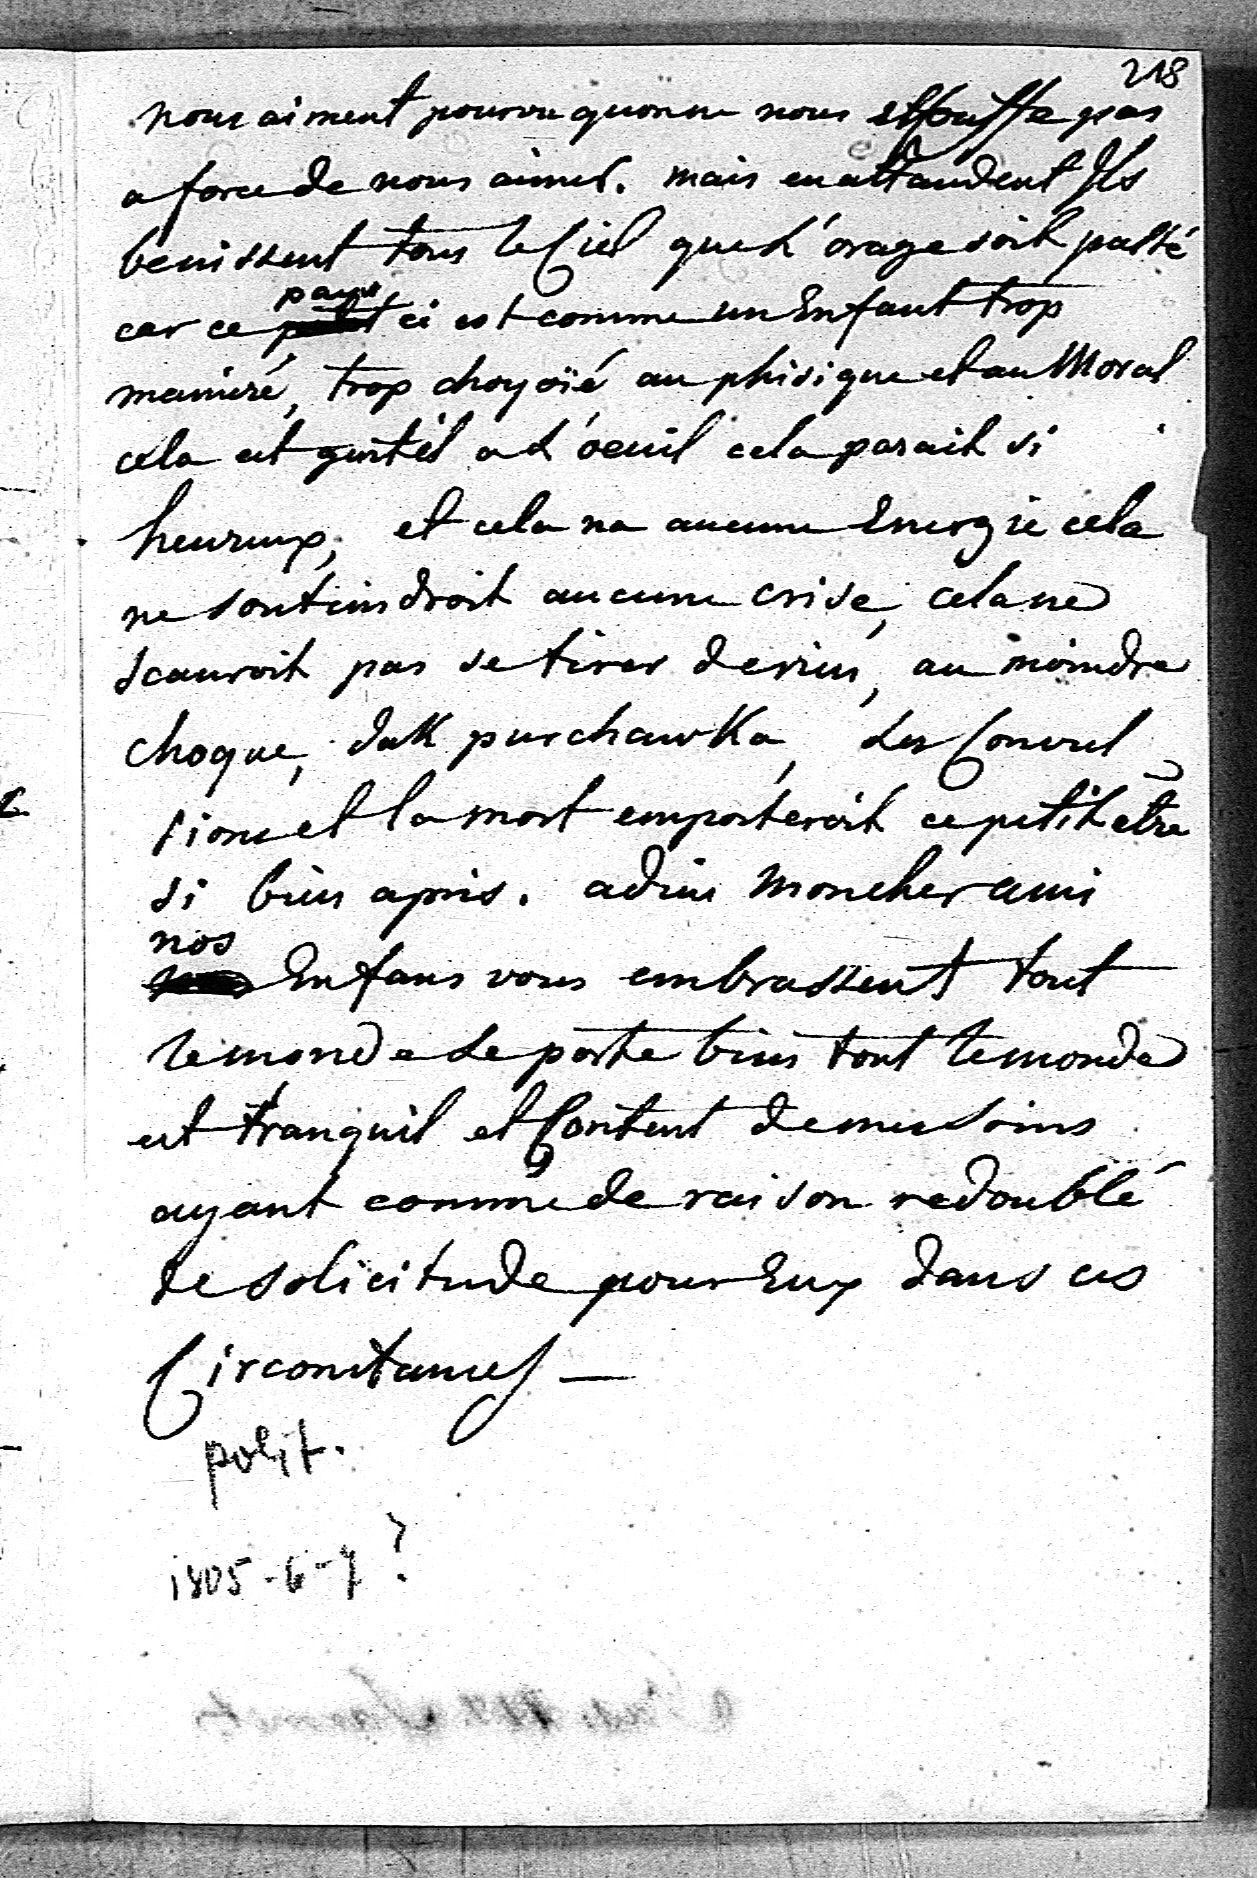 218
nous aiment pourvu quon ne nous etouffe pas
a force de nous aimer. mais en attandent Ils
benissent tous le Ciel que L'orage soit passé
pays
car ce petit ci est comme un Enfant trop
manieré, trop choyoïé au phisique et au Moral
cela est gentil a L'oeuil cela parait si
heureux, et cela na aucune Energie cela
ne soutiendroit aucune crise, cela ne
scauroit pas se tirer de rien, au moindre
choque, dak purchawka, Les Convul
sions et la mort emporteroit ce petit etre
si bien apris. adieu Mon cher ami
nos
Enfans vous embrassent tout
le monde se porte bien tout le monde
est tranquil et Content de mes soins
ayant comme de raison redoublé
de solicitude pour Eux dans ces
Circonstances —
polit.
1805-6-7?